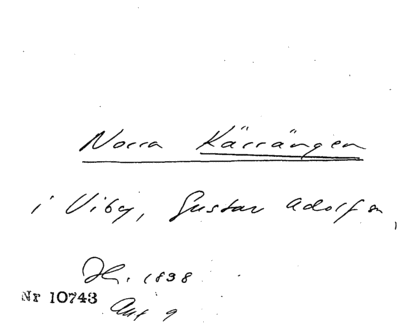 Norra Kärrängen
i Viby, Gustav Adolf sn,
Hr. 1838
Nr 10743
Akt 9